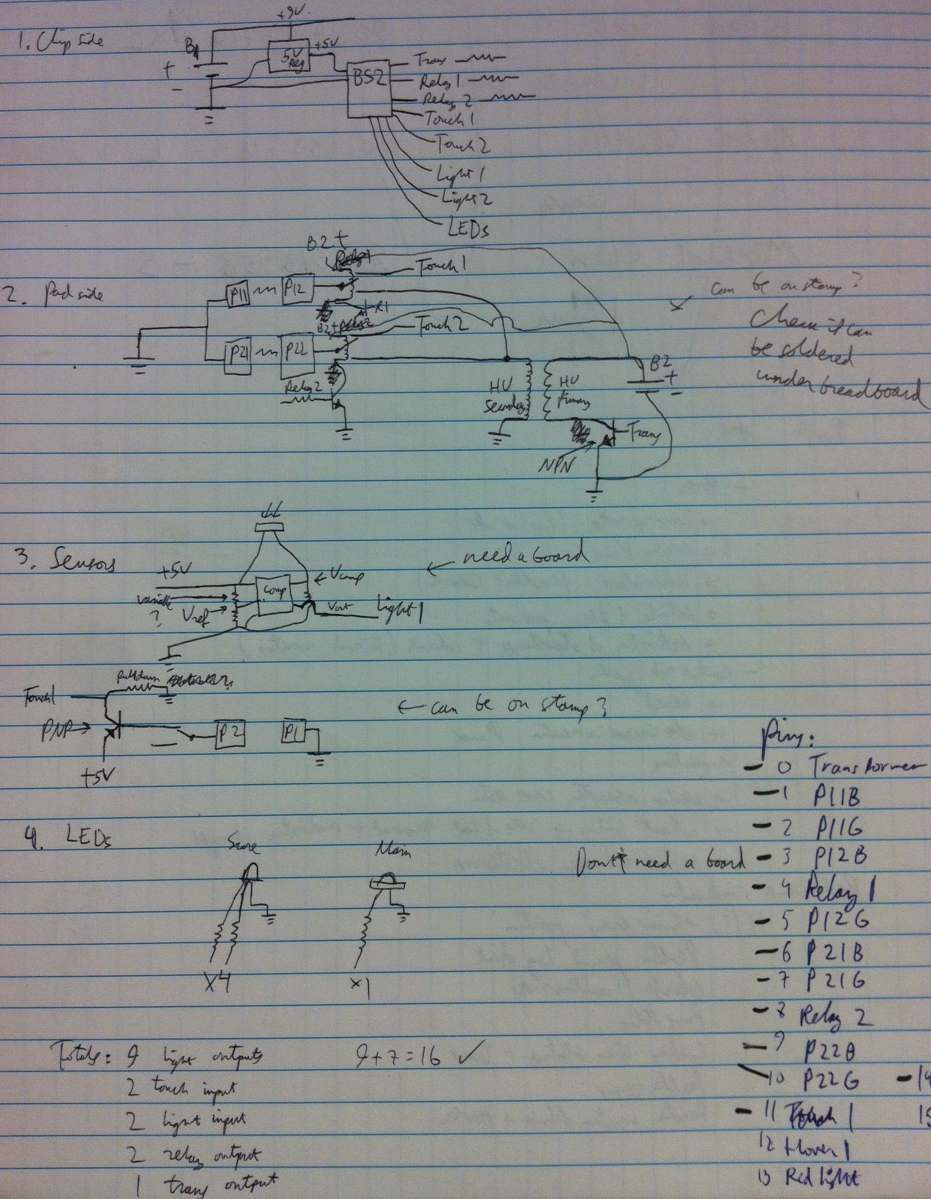 1. Chip side
+9V
B1
+
-
5V Reg
+5V
BS2
Trans
Relay 1
Relay 2
Touch 1
Touch 2
Light 1
Light 2
LEDs
2. Pad side
B2 +
P11 P12
Touch 1
P21 P22
Touch 2
Relay 2
HV Secondary
HV Primary
B2
+
-
Trans
NPN
can be on stamp?
Check if can
be soldered
under breadboard
3. Sensors
+5V
variable ?
Vref
Comp
Vcomp
Vout
Light 1
← need a board
Touch 1
Pulldown
PNP
+5V
P2
P1
← can be on stamp?
4. LEDs
Score
Main
X4
X1
Don't need a board
Pins:
- 0 Transformer
- 1 P11B
- 2 P11G
- 3 P12B
- 4 Relay 1
- 5 P12G
- 6 P21B
- 7 P21G
- 8 Relay 2
- 9 P22B
- 10 P22G
- 14
- 11 Touch 1
15
12 Hover 1
13 Red light
Totals: 9 light outputs
9+7=16 ✓
2 touch input
2 light input
2 relay output
1 trans output